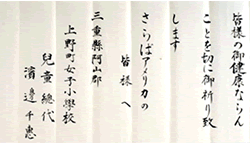 皆様の御健康ならん
ことを切に御祈り致
します
さらばアメリカの
皆様へ
三重縣阿山郡
上野町女子小學校
兒童總代
濱邊千惠